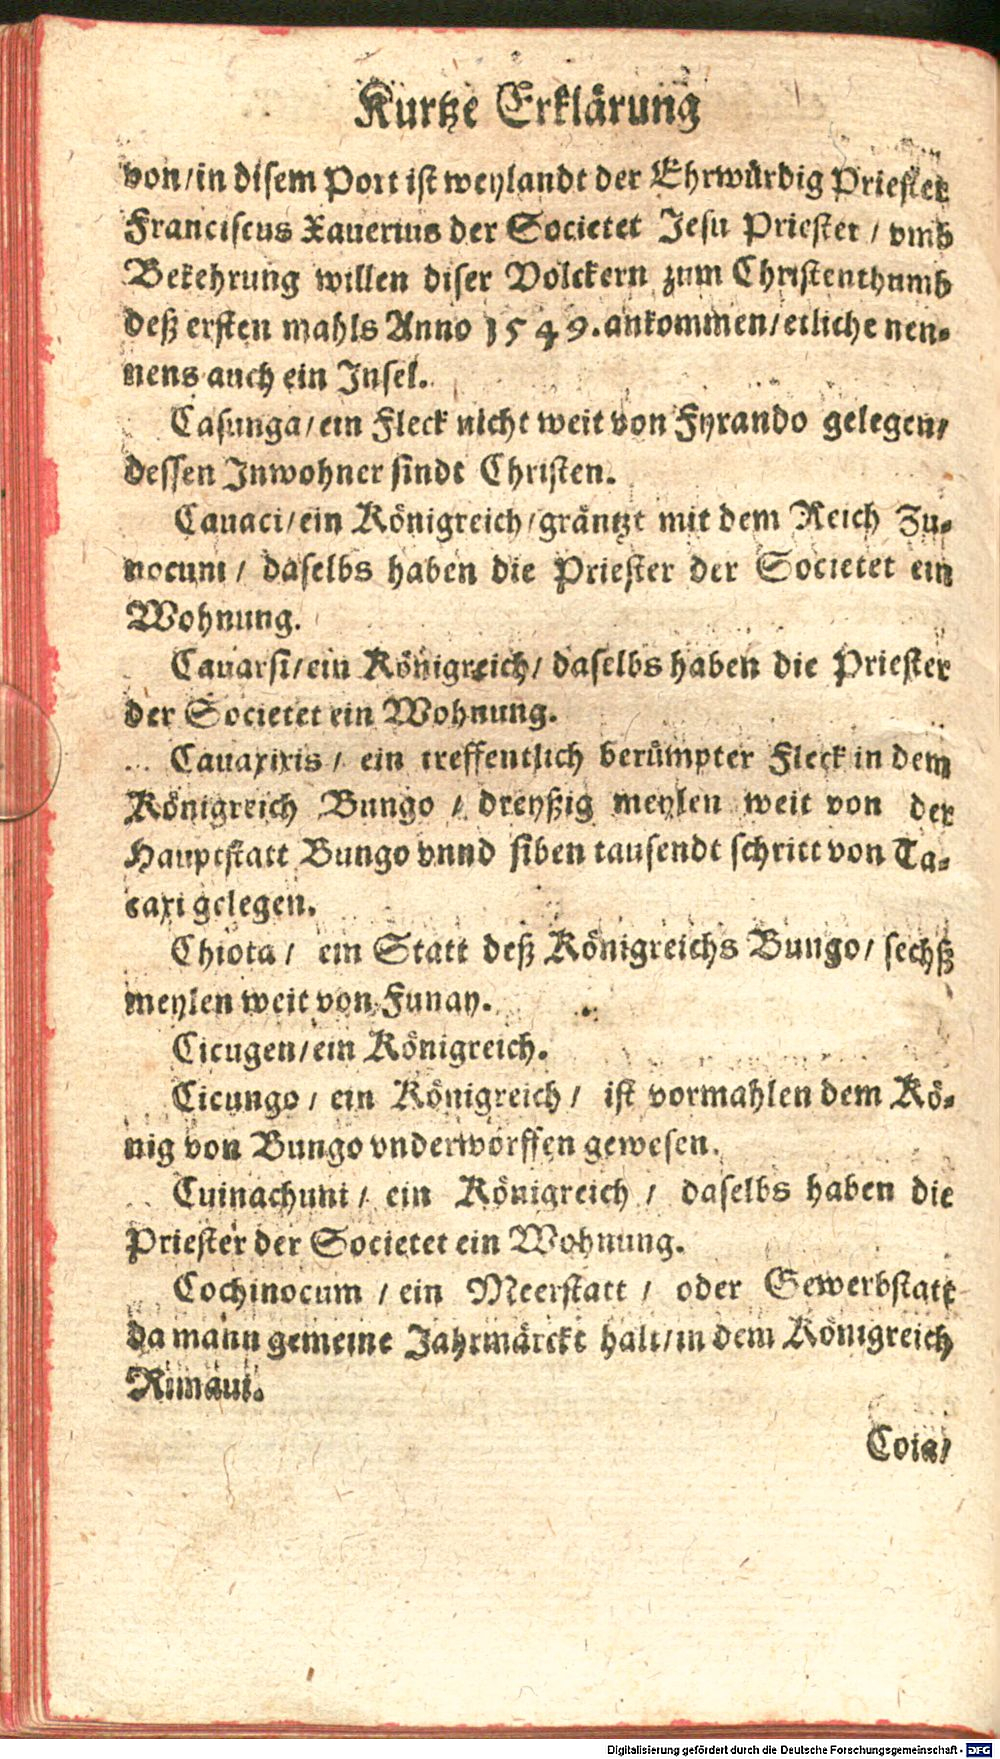 Kurtze Erklärung
von/in disem Port ist weylandt der Ehrwürdig Priester
Franciscus Xauerius der Societet Jesu Priester / vmb
Bekehrung willen diser Volckern zum Christenthumb
deß ersten mahls Anno 1549. ankommen/etliche nen-
nens auch ein Insel.
Casunga/ein Fleck nicht weit von Fyrando gelegen/
dessen Inwohner sindt Christen.
Cauaci/ein Königreich/gräntzt mit dem Reich Zu-
nocuni / daselbs haben die Priester der Societet ein
Wohnung.
Cauarsi/ein Königreich/ daselbs haben die Priester
der Societet ein Wohnung.
Cauaxixis / ein treffentlich berümpter Fleck in dem
Königreich Bungo / dreyßig meylen weit von der
Hauptstatt Bungo vnnd siben tausendt schritt von Ta-
caxi gelegen.
Chiota / ein Statt deß Königreichs Bungo/ sechß
meylen weit von Funay.
Cicugen/ein Königreich.
Cicungo / ein Königreich / ist vormahlen dem Kö-
nig von Bungo vnderworffen gewesen.
Cuinachuni / ein Königreich / daselbs haben die
Priester der Societet ein Wohnung.
Cochinocum / ein Meerstatt / oder Gewerbstatt
da mann gemeine Jahrmärckt halt/in dem Königreich
Rimaui.
Coia/
Digitalisierung gefördert durch die Deutsche Forschungsgemeinschaft - DFG